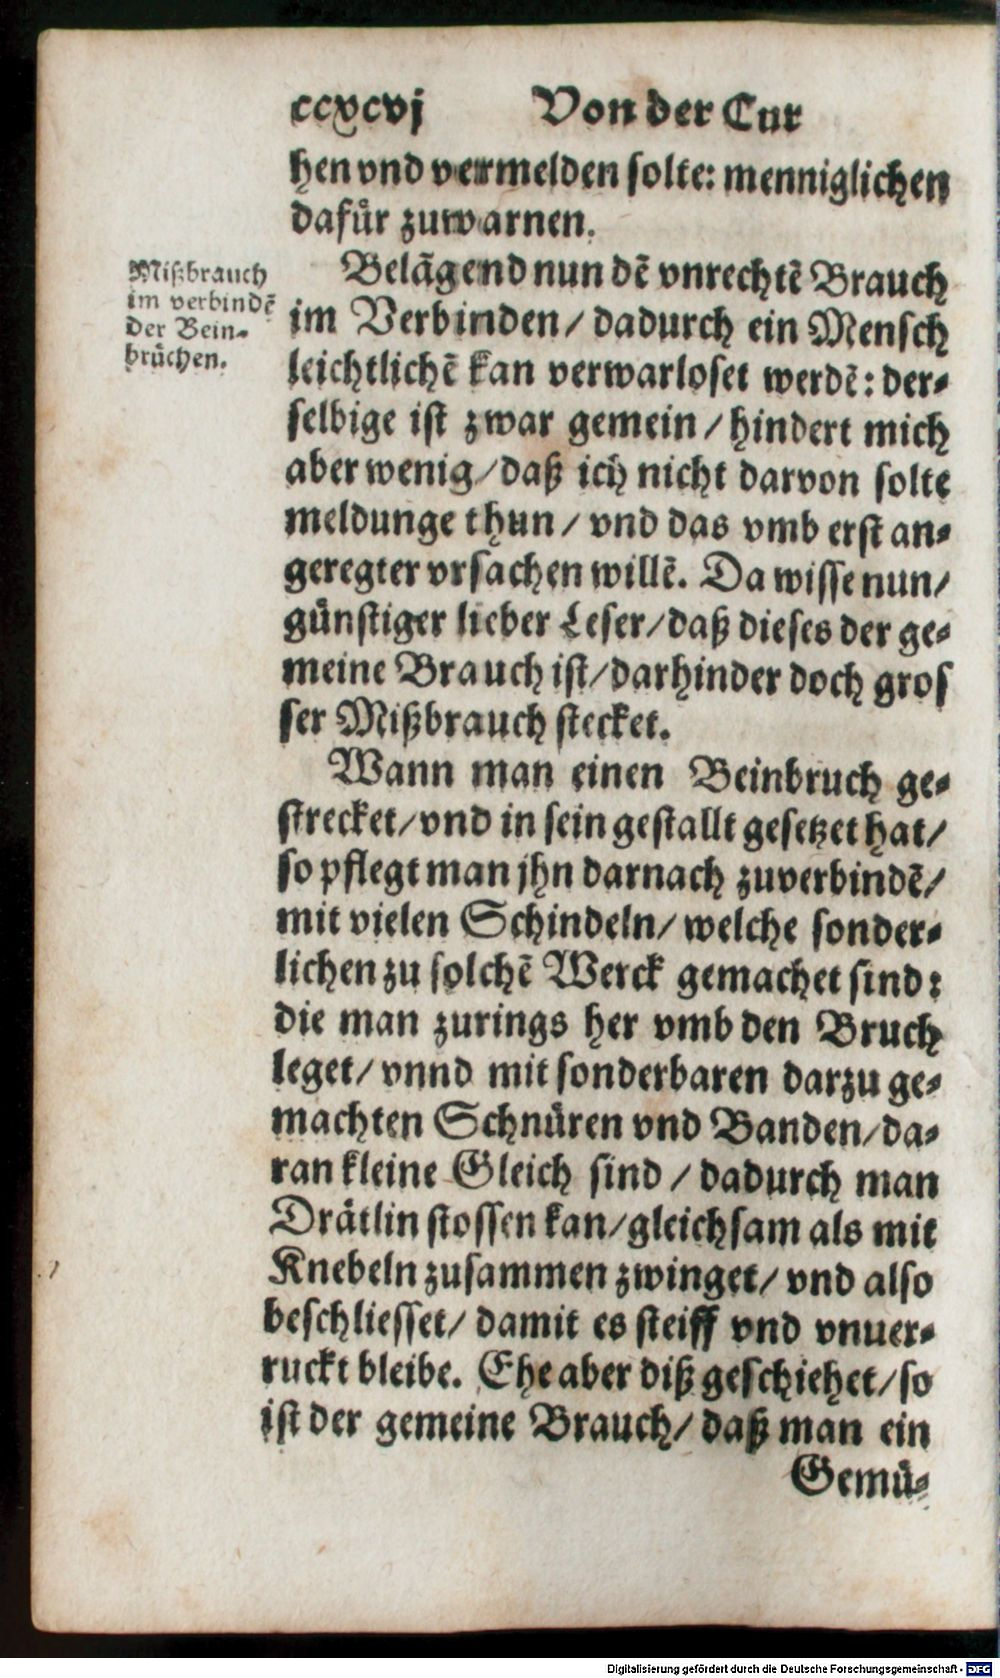 ccxcvj Von der Cur
hen vnd vermelden solte: menniglichen
dafür zuwarnen.
Mißbrauch
im verbindẽ
der Bein-
brüchen.
Belãgend nun dẽ vnrechtẽ Brauch
im Verbinden/ dadurch ein Mensch
leichtlichẽ kan verwarloset werdẽ: der-
selbige ist zwar gemein/ hindert mich
aber wenig/ daß ich nicht darvon solte
meldunge thun/ vnd das vmb erst an-
geregter vrsachen willẽ. Da wisse nun/
günstiger lieber Leser/ daß dieses der ge-
meine Brauch ist/ darhinder doch gros
ser Mißbrauch stecket.
Wann man einen Beinbruch ge-
strecket/ vnd in sein gestallt gesetzet hat/
so pflegt man jhn darnach zuverbindẽ/
mit vielen Schindeln/ welche sonder-
lichen zu solchẽ Werck gemachet sind:
die man zurings her vmb den Bruch
leget/ vnnd mit sonderbaren darzu ge-
machten Schnüren vnd Banden/ da-
ran kleine Gleich sind/ dadurch man
Drätlin stossen kan/ gleichsam als mit
Knebeln zusammen zwinget/ vnd also
beschliesset/ damit es steiff vnd vnuer-
ruckt bleibe. Ehe aber diß geschiehet/ so
ist der gemeine Brauch/ daß man ein
Gemü-
Digitalisierung gefördert durch die Deutsche Forschungsgemeinschaft - DFG